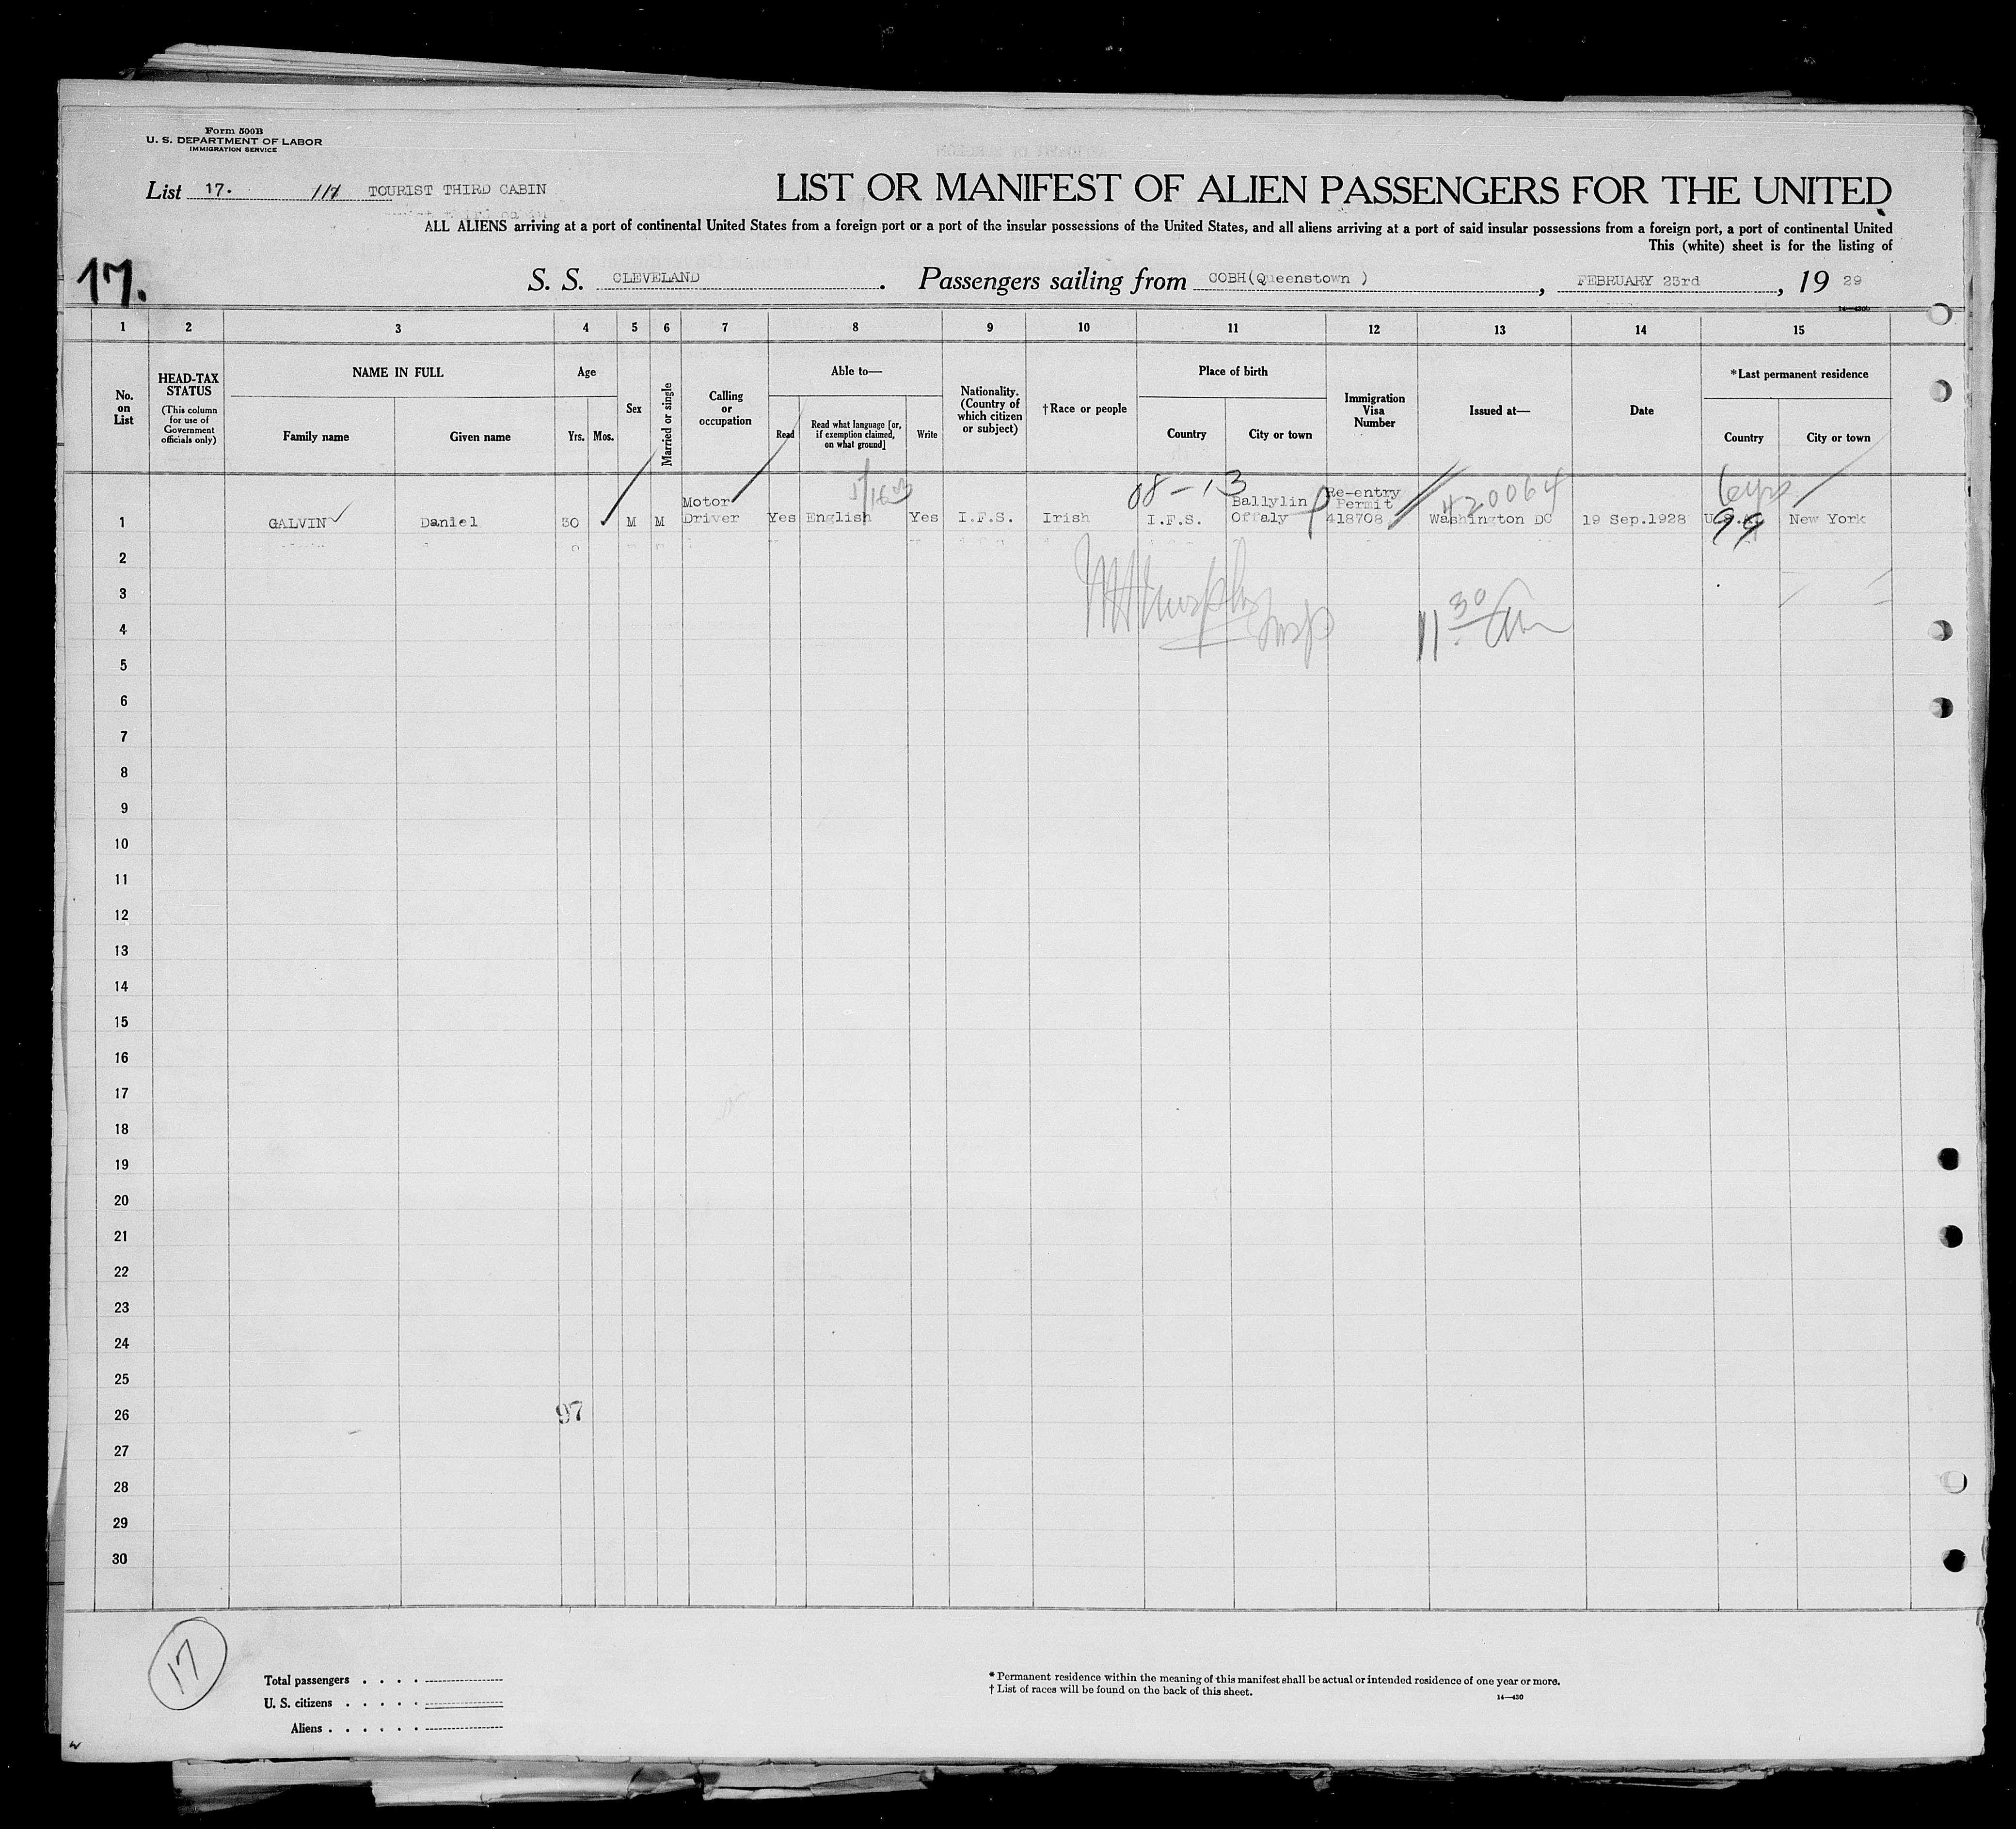 Form 500B
U. S. DEPARTMENT OF LABOR
IMMIGRATION SERVICE
List 17. 117 TOURIST THIRD CABIN
LIST OR MANIFEST OF ALIEN PASSENGERS FOR THE UNITED
ALL ALIENS arriving at a port of continental United States from a foreign port or a port of the insular possessions of the United States, and all aliens arriving at a port of said insular possessions from a foreign port, a port of continental United
This (white) sheet is for the listing of
17.
S. S. CLEVELAND . Passengers sailing from COBH(Queenstown ) , FEBRUARY 23rd , 19 29
14—430b
1 2 3 4 5 6 7 8 9 10 11 12 13 14 15
No. on List
HEAD-TAX STATUS
(This column for use of Government officials only)
NAME IN FULL
Family name Given name
Age
Yrs. Mos.
Sex
Married or single
Calling or occupation
Able to—
Read
Read what language [or, if exemption claimed, on what ground]
Write
Nationality. (Country of which citizen or subject)
†Race or people
Place of birth
Country City or town
Immigration Visa Number
Issued at—
Date
*Last permanent residence
Country City or town
08-13 420064
Motor Ballylin Re-entry Permit
1 GALVIN Daniel 30 M M Driver Yes English Yes I.F.S. Irish I.F.S. Offaly 418708 Washington DC 19 Sep.1928 U.S.A. New York
99
2
3
Murphy Insp
11 30 Am
4
5
6
7
8
9
10
11
12
13
14
15
16
17
18
19
20
21
22
23
24
25
26
97
27
28
29
30
17
Total passengers . . . .
U. S. citizens . . . . .
Aliens . . . . . .
* Permanent residence within the meaning of this manifest shall be actual or intended residence of one year or more.
† List of races will be found on the back of this sheet.
14—430